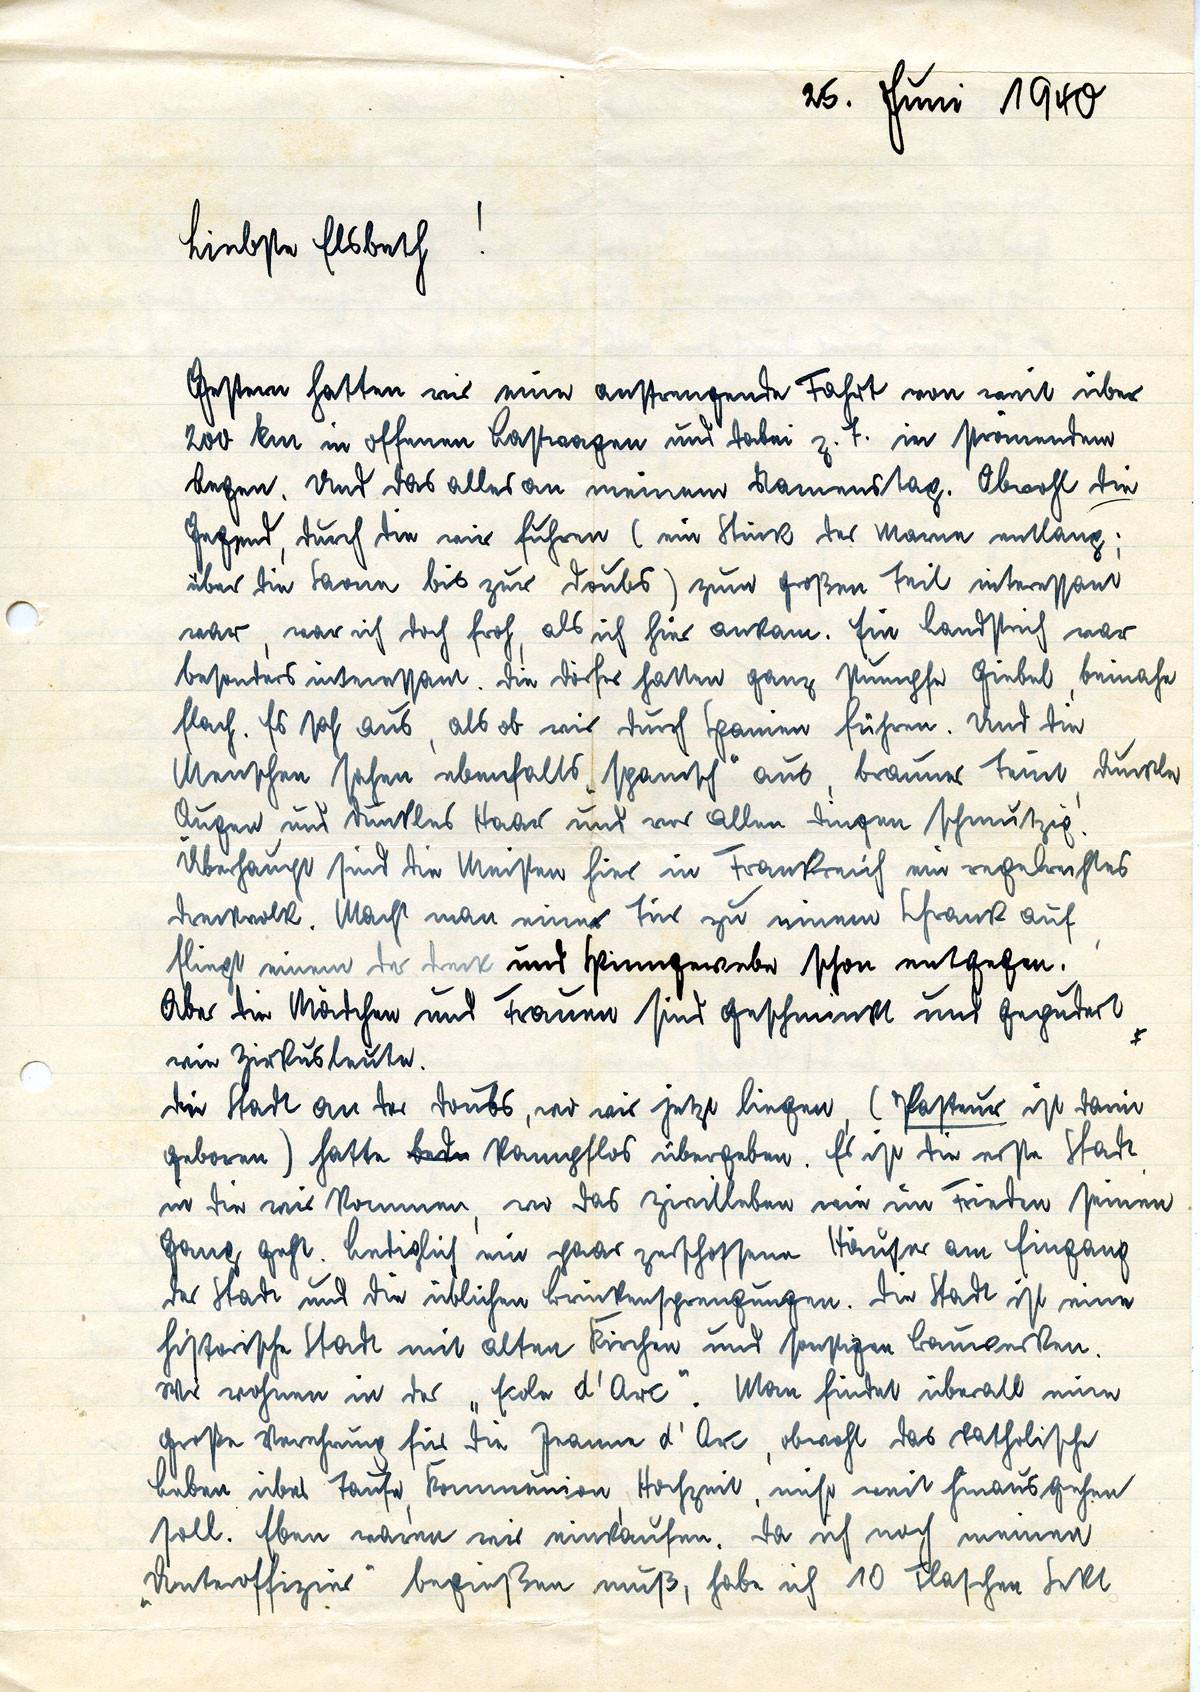 25. Juni 1940
Liebste Elsbeth !
Gestern hatten wir eine anstrengende Fahrt von weit über
200 km in offenen Lastwagen und dabei z. T. in strömendem
Regen. Und das alles an meinem Namenstag. Obwohl die
Gegend, durch die wir fuhren ( ein Stück der Marne entlang;
über die Saone bis zur Doubs ) zum großen Teil interessant
war, war ich doch froh, als ich hier ankam. Ein Landstrich war
besonders interessant. Die Dörfer hatten ganz stumpfe Giebel, beinahe
flach. Es sah aus, als ob wir durch Spanien führen. Und die
Menschen sahen ebenfalls „spanisch" aus, brauner Teint, dunkle
Augen und dunkles Haar und vor allen Dingen schmutzig!
Überhaupt sind die Meisten hier in Frankreich ein regelrechtes
Dreckvolk. Macht man eine Tür zu einem Schrank auf,
fliegt einem der Dreck und Spinngewebe schon entgegen.
Aber die Mädchen und Frauen sind geschminkt und gepudert
wie Zirkusleute.
Die Stadt an der Doubs, wo wir jetzt liegen, ( Pasteur ist darin
geboren ) hatte kampflos übergeben. Es ist die erste Stadt,
in die wir kommen, wo das Zivilleben wie im Frieden seinen
Gang geht. Lediglich ein paar zerschossene Häuser am Eingang
der Stadt und die üblichen Brückensprengungen. Die Stadt ist eine
historische Stadt mit alten Kirchen und sonstigen Bauwerken.
Wir wohnen in der „Ecole d'Arc". Man findet überall eine
große Verehrung für die Jeanne d'Arc, obwohl das katholische
Leben über Taufe, Kommunion, Hochzeit, nicht weit hinausgehen
soll. Eben waren wir einkaufen. Da ich noch meinen
„Unteroffizier" begießen muß, habe ich 10 Flaschen Sekt